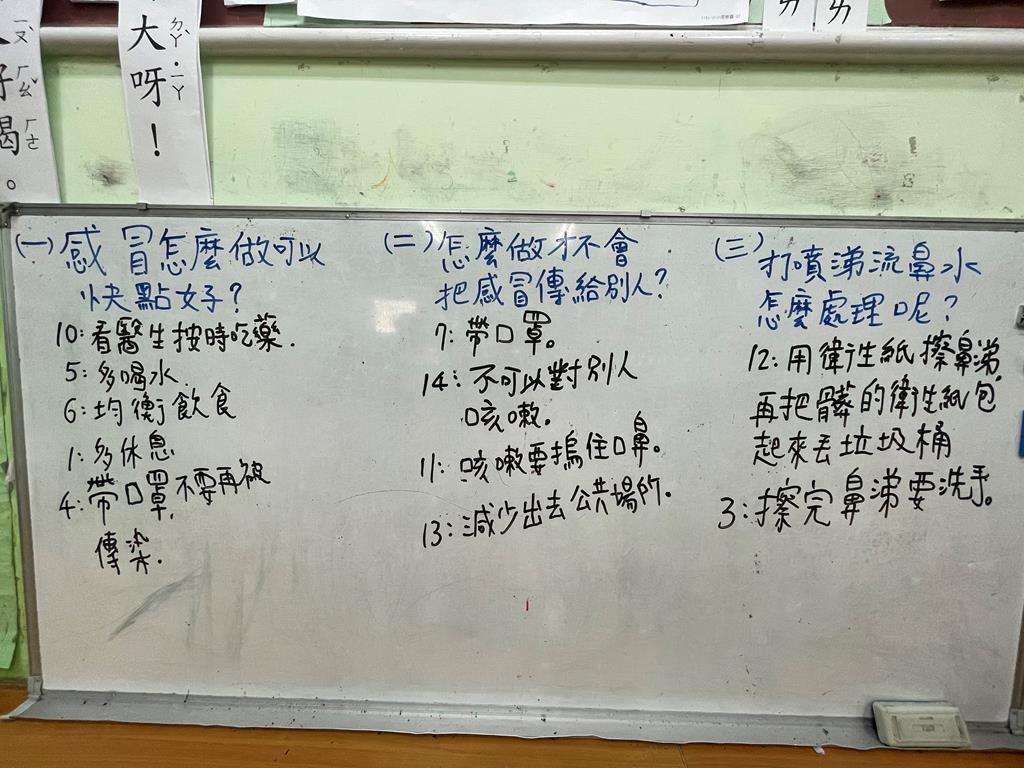 大呀！
ㄉㄚˋ ˙ㄧㄚ
好喝。
ㄏㄠˇ ㄏㄜ
ㄌ
ㄌ
(一) 感冒怎麼做可以
快點好？
10：看醫生按時吃藥.
5：多喝水
6：均衡飲食
1：多休息
4：帶口罩,不要再被
傳染.
(二) 怎麼做才不會
把感冒傳給別人？
7：帶口罩。
14：不可以對別人
咳嗽.
11：咳嗽要摀住口鼻。
13：減少出去公共場所.
(三) 打噴涕流鼻水
怎麼處理呢？
12：用衛生紙擦鼻涕,
再把髒的衛生紙包
起來丟垃圾桶
3：擦完鼻涕要洗手。